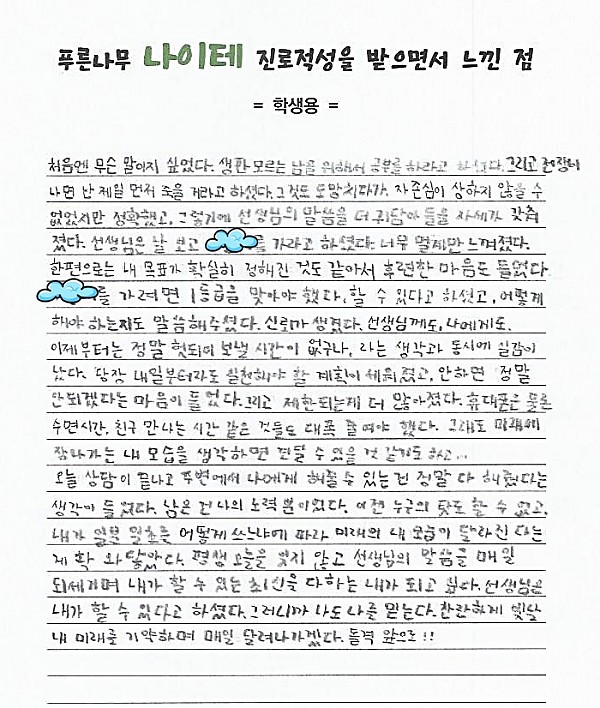 푸른나무 나이테 진로적성을 받으면서 느낀 점
= 학생용 =
처음엔 무슨 말이지 싶었다. 생판 모르는 남을 위해서 공부를 하라고 하셨다. 그리고 전쟁이
나면 난 제일 먼저 죽을 거라고 하셨다. 그것도 도망치다가. 자존심이 상하지 않을 수
없었지만 정확했고, 그렇기에 선생님의 말씀을 더 귀담아 들을 자세가 갖춰
졌다. 선생님은 날 보고 를 가라고 하셨다. 너무 멀게만 느껴졌다.
한편으로는 내 목표가 확실히 정해진 것도 같아서 후련한 마음도 들었다.
를 가려면 1등급을 맞아야 했다. 할 수 있다고 하셨고, 어떻게
해야 하는지도 말씀해주셨다. 신뢰가 생겼다. 선생님께도, 나에게도.
이제부터는 정말 헛되이 보낼 시간이 없구나, 라는 생각과 동시에 실감이
났다. 당장 내일부터라도 실천해야 할 계획이 세워졌고, 안하면 정말
안되겠다는 마음이 들었다. 그리고 제한되는게 더 많아졌다. 휴대폰은 물론
수면시간, 친구 만나는 시간 같은 것들도 대폭 줄여야 했다. 그래도 미래에
잘나가는 내 모습을 생각하면 견딜 수 있을 것 같기도 하고...
오늘 상담이 끝나고 주변에서 나에게 해줄 수 있는 건 정말 다 해줬다는
생각이 들었다. 남은 건 나의 노력 뿐이었다. 이젠 누구의 탓도 할 수 없고,
내가 일분 일초를 어떻게 쓰느냐에 따라 미래의 내 모습이 달라진다는
게 확 와닿았다. 평생 오늘을 잊지 않고 선생님의 말씀을 매일
되새기며 내가 할 수 있는 최선을 다하는 내가 되고 싶다. 선생님은
내가 할 수 있다고 하셨다. 그러니까 나도 나를 믿는다. 찬란하게 빛날
내 미래를 기약하며 매일 달려나가겠다. 돌격 앞으로!!